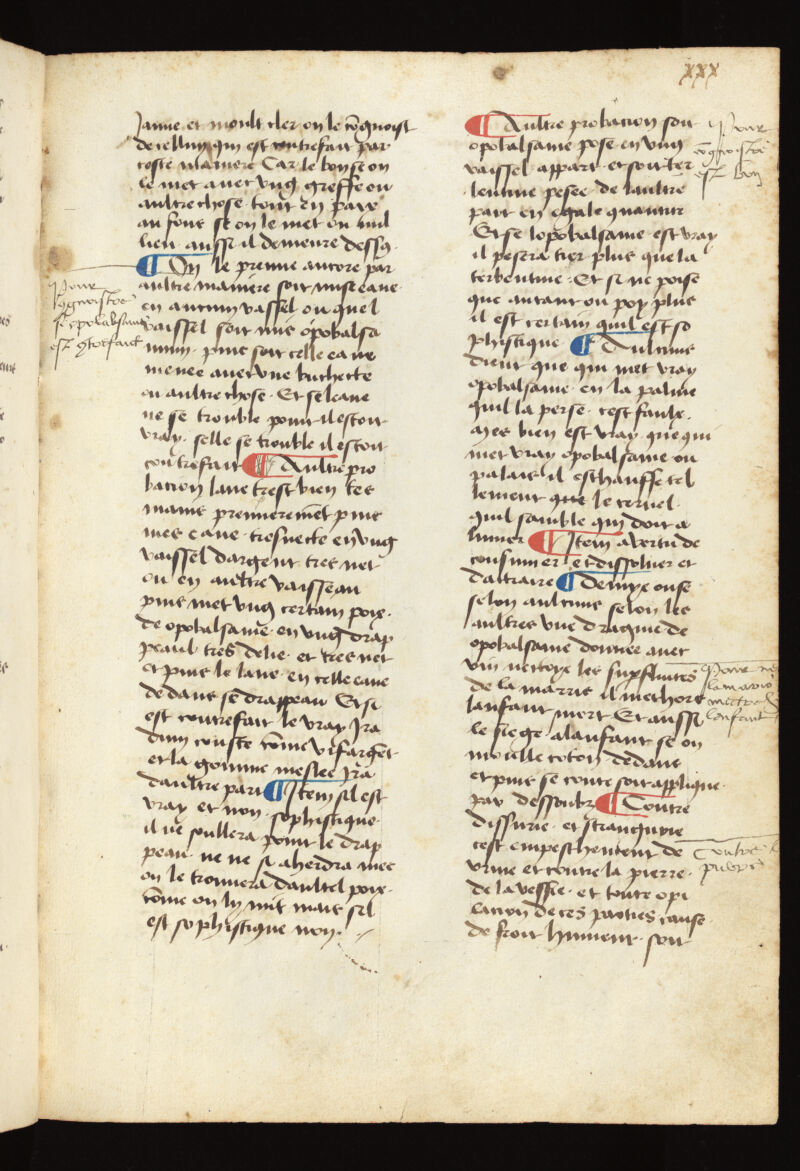 xxx
Janne et moult cler on le cõgnoist
de celluy qui est contrefait par
ceste maniere Car le bon se on
le met avec ung greffe ou
aultre chose tout en paix
au fons se on le met ou mil
lieu aussi il demeure dessq
¶ On le preuve ancore par
aultre maniere soit mise eaue
en aucun vassel ou quel
vaissel soit mis opobalsa
mum puis soit celle eaue
menee avec une buchette
ou aultre chose. Et se leaue
ne se trouble point il estoit
vray. selle se trouble il estoit
contrefait ¶ Aultre pro
bacion lave tresbien tes
mains premierement puis
mes eaue tresnecte en ung
vaissel dargent tres net
ou en aultre vaisseau
puis met ung certain poix
de opobalsame en ung drap
peaul tres delie et tres net
et puis le lave en celle eaue
dedans se drappeau Et si
est contrefait le vray ira
dun couste cõme vif argẽt
et la gomme meslee ira
daultre part ¶ Item sil est
vray et non sophistique
il ne soullera point le drap
peau ne ne si aherdra mes
on le trouvera daultel poix
cõme on ly mit mais sil
est sophistique non.
Pour
cõgnoistre
se opobalsame
est cõtrefait
¶ Aultre probacion soit
opobalsame pose en ung
vaissel appart et soit ter
bentine pesee de laultre
part en egale quantite
Et se lopobalsame est vray
il pesera tier plus que la
terbentine. Et si ne poise
que autant ou poy plus
il est certain quil est so
phistique ¶ Aulcuns
dient que qui met vray
opobalsame en la palme
quil la perse. cest faulx.
Mes bien est vray que qui
met vray opobalsame ou
palais il eschauffe tel
lement que le cervel
quil samble quy doit a
lumer ¶ Item a vertu de
consumer et dissolver et
dattraire ¶ Demye onse
selon aulcuns selon les
aultres une dragme de
opobalsame donnee avec
vin nettoye les supfluites
de la marris il met hors
lanfant mort Et aussi
le siege a lanfant se on
moulle coton dedans
et puis se coute soit applique
par dessoubz ¶ Contre
dissurie et stranguyrie
cest empeschement de
urine et contre la pierre
de la vessie et toute opi
lacion de ces parties cause
de froit humeur soit
Pour
cõgnoistre
est bon
Pour ne
la marris
mectre
lanfant
Contre